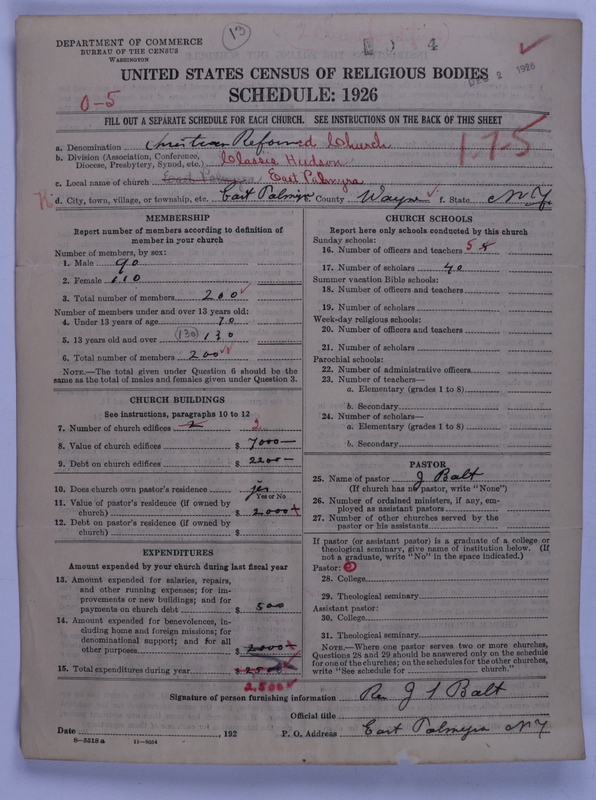 13
4
DEC 2 1926
DEPARTMENT OF COMMERCE
BUREAU OF THE CENSUS
WASHINGTON
UNITED STATES CENSUS OF RELIGIOUS BODIES
SCHEDULE: 1926
0-5
FILL OUT A SEPARATE SCHEDULE FOR EACH CHURCH. SEE INSTRUCTIONS ON THE BACK OF THIS SHEET
1-7-5
a. Denomination Christian Reformed Church
b. Division (Association, Conference, Diocese, Presbytery, Synod, etc.) Classis Hudson
c. Local name of church East Palmyra East Palmyra
d. City, town, village, or township, etc. East Palmyra County Wayne f. State N Y.
MEMBERSHIP
Report number of members according to definition of
member in your church
Number of members, by sex:
1. Male 90
2. Female 110
3. Total number of members 200
Number of members under and over 13 years old:
4. Under 13 years of age 70
5. 13 years old and over (130) 130
6. Total number of members 200
NOTE.—The total given under Question 6 should be the
same as the total of males and females given under Question 3.
CHURCH BUILDINGS
See instructions, paragraphs 10 to 12
7. Number of church edifices 2 2
8. Value of church edifices $ 7000—
9. Debt on church edifices $ 2200—
10. Does church own pastor's residence yes
Yes or No
11. Value of pastor's residence (if owned by
church) $ 2000
12. Debt on pastor's residence (if owned by
church) $
EXPENDITURES
Amount expended by your church during last fiscal year
13. Amount expended for salaries, repairs,
and other running expenses; for im-
provements or new buildings; and for
payments on church debt $ 500
14. Amount expended for benevolences, in-
cluding home and foreign missions; for
denominational support; and for all
other purposes $ 2000
15. Total expenditures during year $ 2500
2,500
CHURCH SCHOOLS
Report here only schools conducted by this church
Sunday schools:
16. Number of officers and teachers 5
17. Number of scholars 40
Summer vacation Bible schools:
18. Number of officers and teachers
19. Number of scholars
Week-day religious schools:
20. Number of officers and teachers
21. Number of scholars
Parochial schools:
22. Number of administrative officers
23. Number of teachers—
a. Elementary (grades 1 to 8)
b. Secondary
24. Number of scholars—
a. Elementary (grades 1 to 8)
b. Secondary
PASTOR
25. Name of pastor J Balt
(If church has no pastor, write "None")
26. Number of ordained ministers, if any, em-
ployed as assistant pastors
27. Number of other churches served by the
pastor or his assistants
If pastor (or assistant pastor) is a graduate of a college or
theological seminary, give name of institution below. (If
not a graduate, write "No" in the space indicated.)
Pastor:
28. College
29. Theological seminary
Assistant pastor:
30. College
31. Theological seminary
NOTE.—Where one pastor serves two or more churches,
Questions 28 and 29 should be answered only on the schedule
for one of the churches; on the schedules for the other churches,
write "See schedule for church."
Signature of person furnishing information Rev J S Balt
Official title
Date , 192 P. O. Address East Palmyra N Y
8—5518 a 11—9054